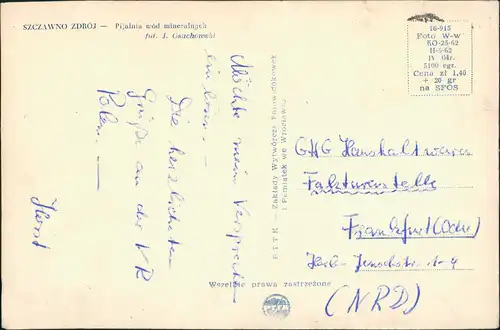 SZCZAWNO ZDRÓJ — Pijalnia wód mineralnych
fot. J. Grachowski
Möchte mein Versprechen
einlösen. —
Die herzlichsten
Grüße an der VR
Polen. —
Horst
PTTK — Zakłady Wytwórcze Fotowidokówek
i Pamiątek we Wrocławiu
16-915
Foto W-w
KO-25-62
II-5-62
IV Okr.
5100 egz.
Cena zł 1,40
+ 20 gr
na SFOS
GHG Haushaltwaren
Fakturenstelle
Frankfurt (Oder)
str. 1-4
(NRD)
Wszelkie prawa zastrzeżone